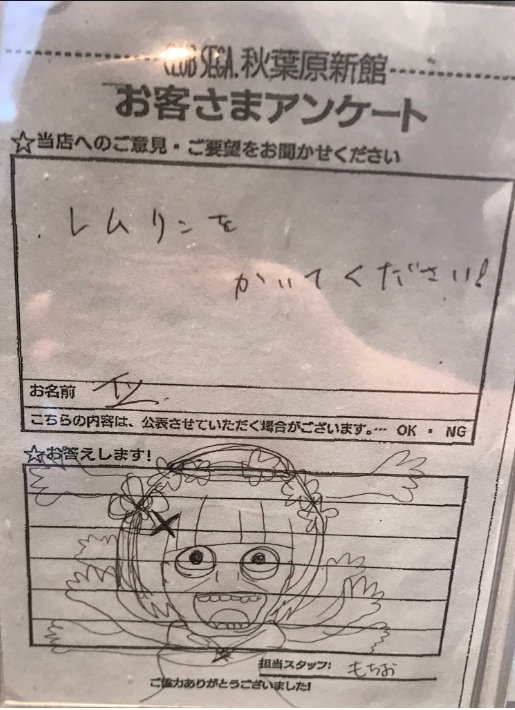 CLUB SEGA. 秋葉原新館
お客さまアンケート
☆当店へのご意見・ご要望をお聞かせください
レムりンを
かいてください!
お名前
こちらの内容は、公表させていただく場合がございます。… OK ・ NG
☆お答えします!
担当スタッフ: もちお
ご協力ありがとうございました!